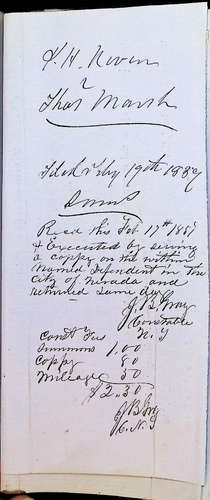 Thos Marsh
Filed July 19th 1887
Recd this Feb 17th 188
& Executed by serving
a coppy on the within
Named Defendent in the
City of Nevada and
returned same day
J. B. Gray
Constable
N. T
Const Fees
Summons 1.00
Coppy 80
Mileage 50
$2.30
J B Gray
C. N. T